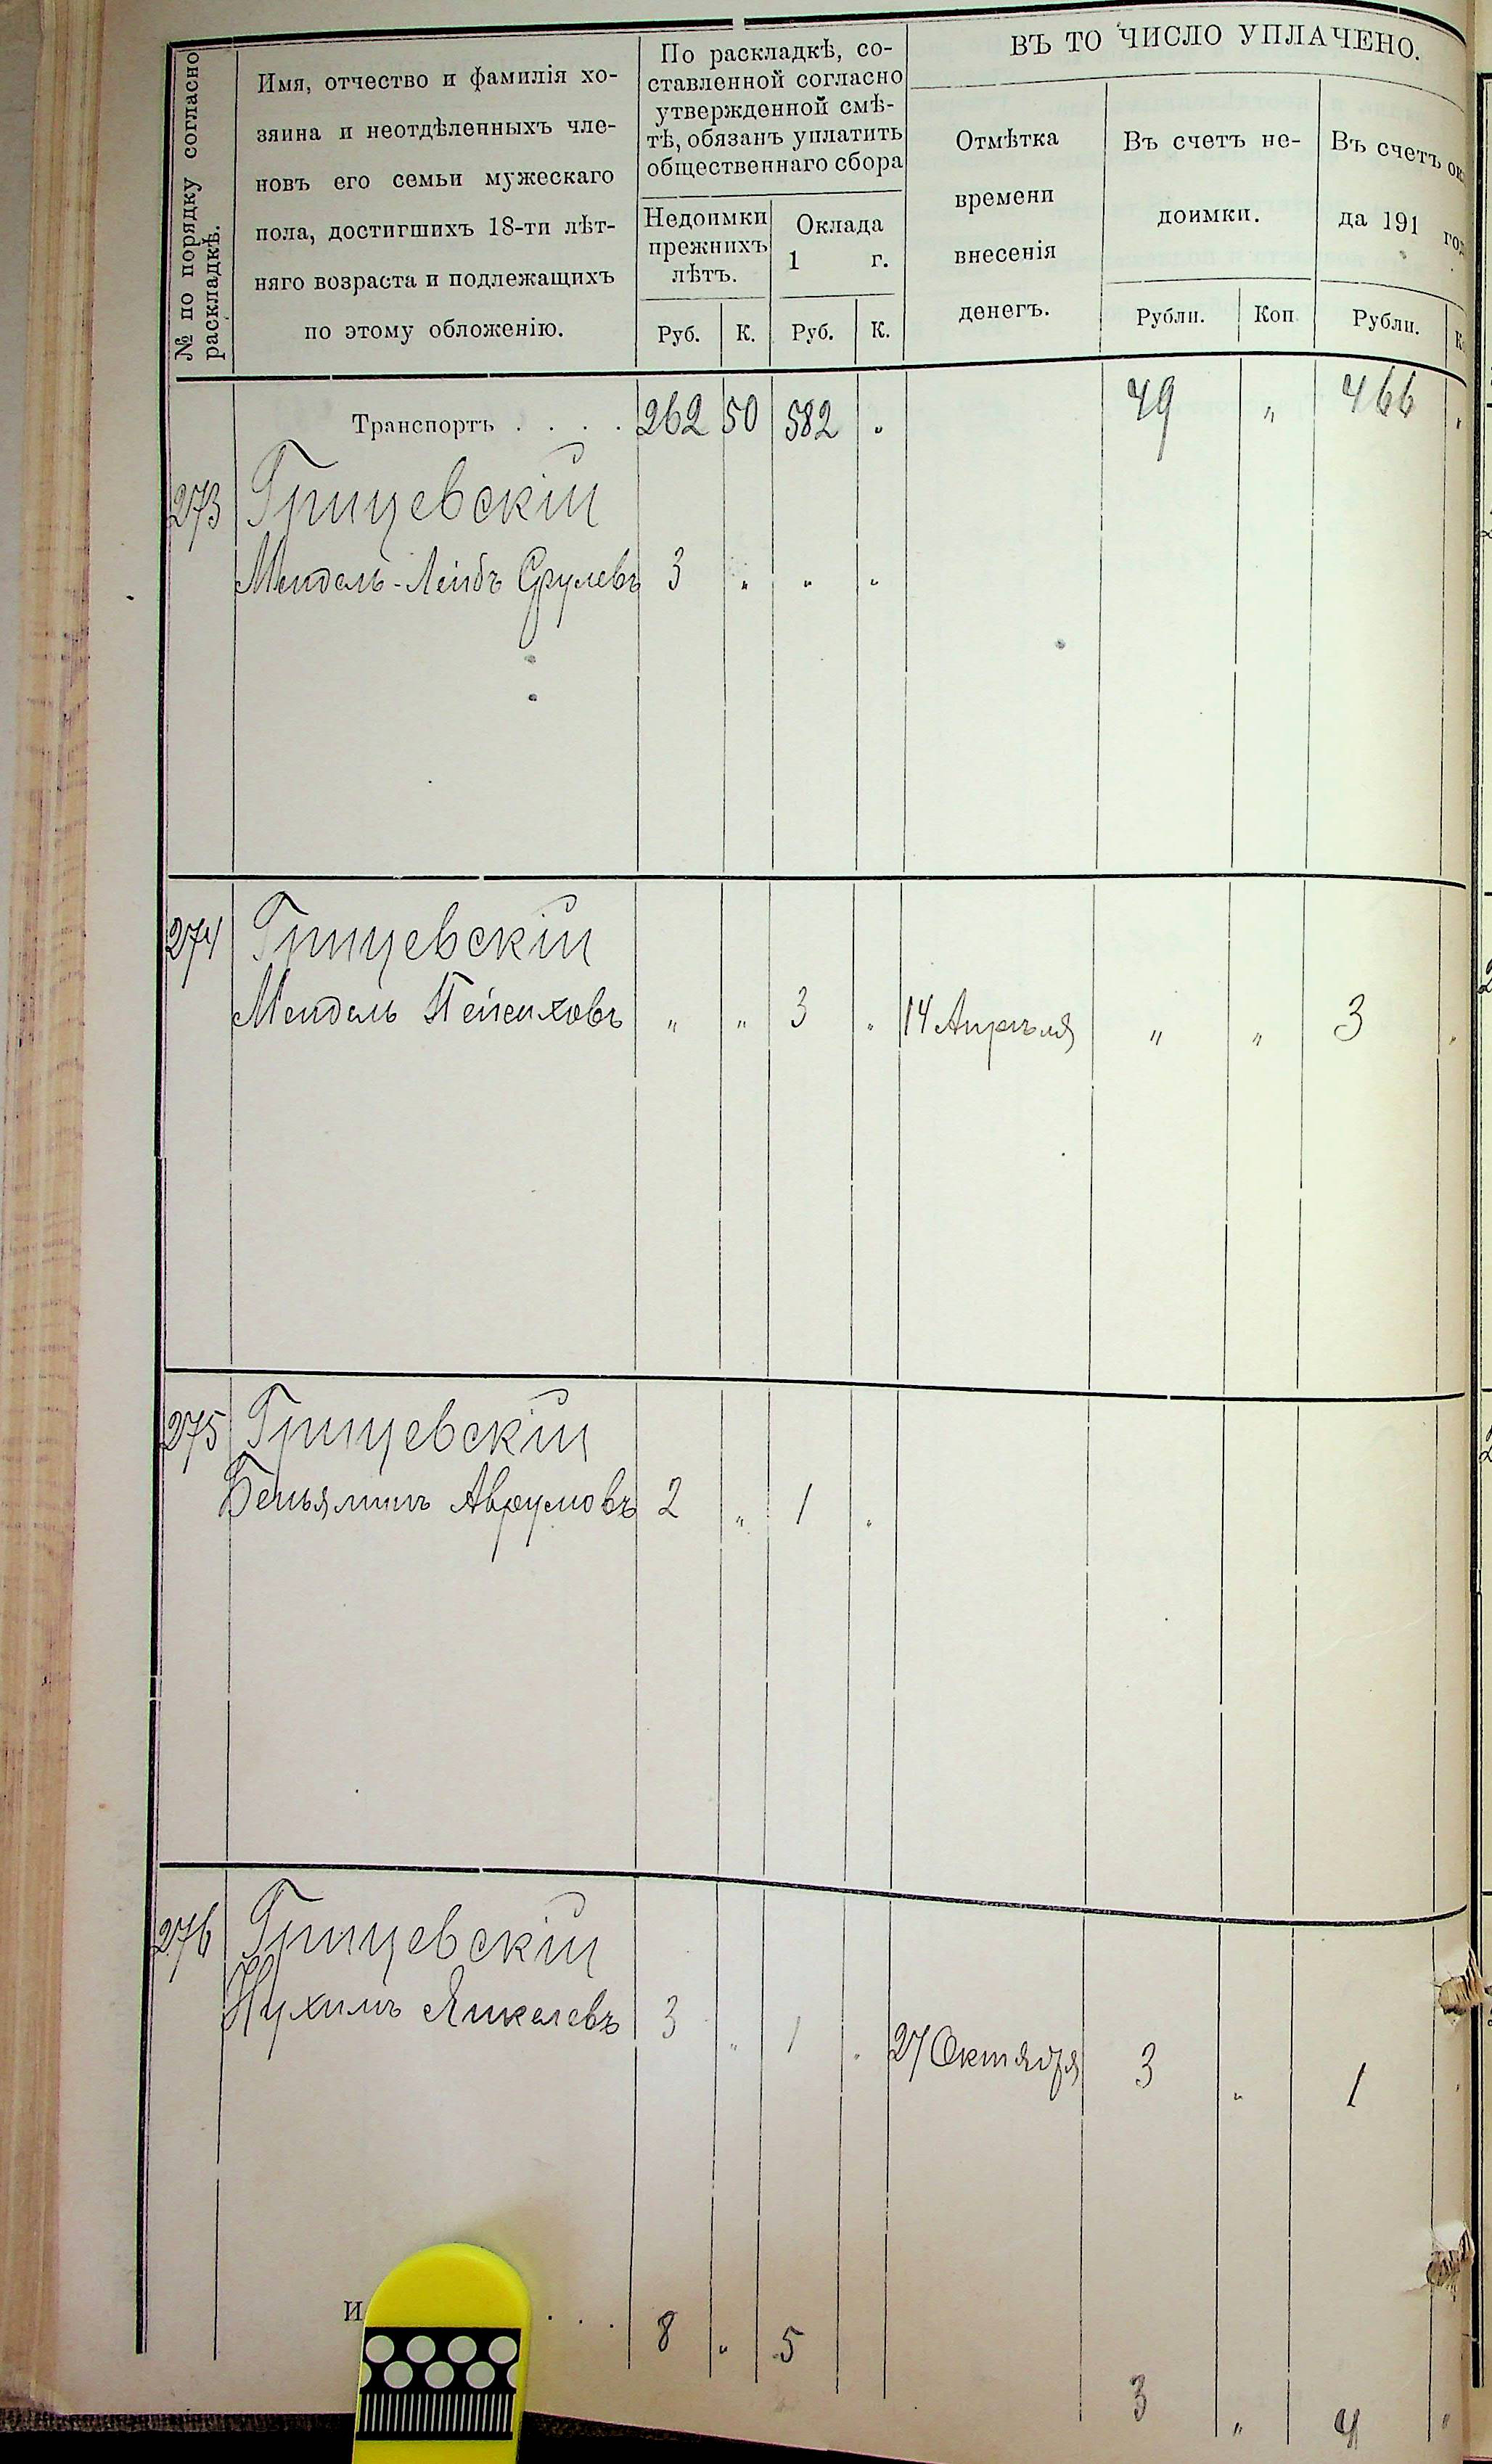 № по порядку согласно
раскладкѣ.
Имя, отчество и фамилія хо-
зяина и неотдѣленныхъ чле-
новъ его семьи мужескаго
пола, достигшихъ 18-ти лѣт-
няго возраста и подлежащихъ
по этому обложенію.
По раскладкѣ, со-
ставленной согласно
утвержденной смѣ-
тѣ, обязанъ уплатить
общественнаго сбора
Недоимки
прежнихъ
лѣтъ.
Оклада
1 г.
Руб. К. Руб. К.
ВЪ ТО ЧИСЛО УПЛАЧЕНО.
Отмѣтка
времени
внесенія
денегъ.
Въ счетъ не-
доимки.
Рубли. Коп
Въ счетъ ок
да 191 год
Рубли. К.
Транспортъ . . . . 262 50 582 „ 49 „ 466 „
273 Грицевскій
Мендель-Лейбъ Срулевъ 3 „ „ „
274 Грицевскій
Мендель Пейсиховъ „ „ 3 „ 14 Апрѣля „ „ 3 „
275 Грицевскій
Беньяминъ Аврумовъ 2 „ 1 „
276 Грицевскій
Нухимъ Янкелевъ 3 „ 1 „ 27 Октября 3 „ 1 „
И . . . 8 „ 5 3 „ 4 „